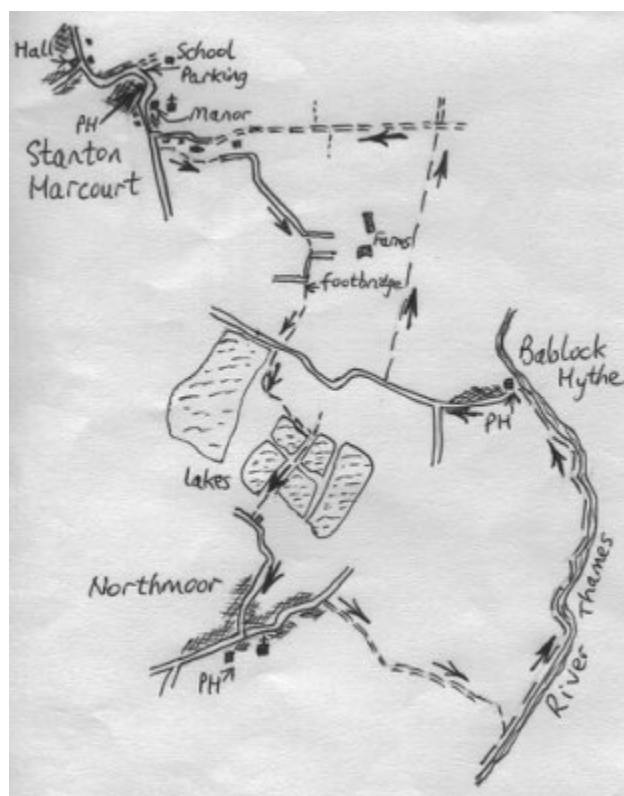 Hall
School
Parking
PH
Manor
Stanton
Marcourt
Farms
footbridge
Bablock
Hythe
PH
Lakes
Northmoor
PH
River Thames